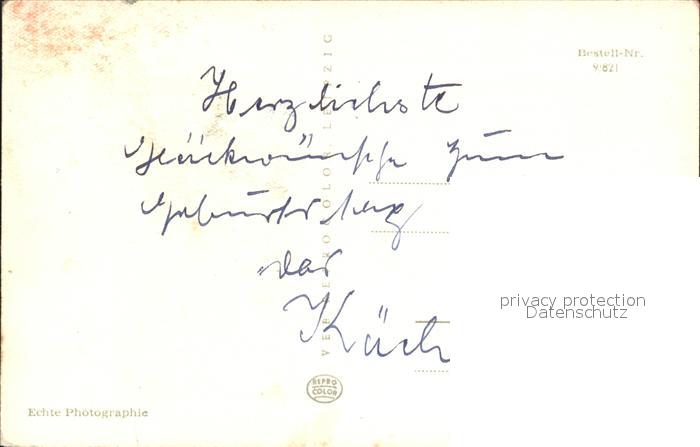 Bestell-Nr.
9/821
Herzlichste
Glückwünsche zum
Geburtstag
VERLAG REPROCOLOR LEIPZIG
privacy protection
Datenschutz
REPRO
COLOR
Echte Photographie